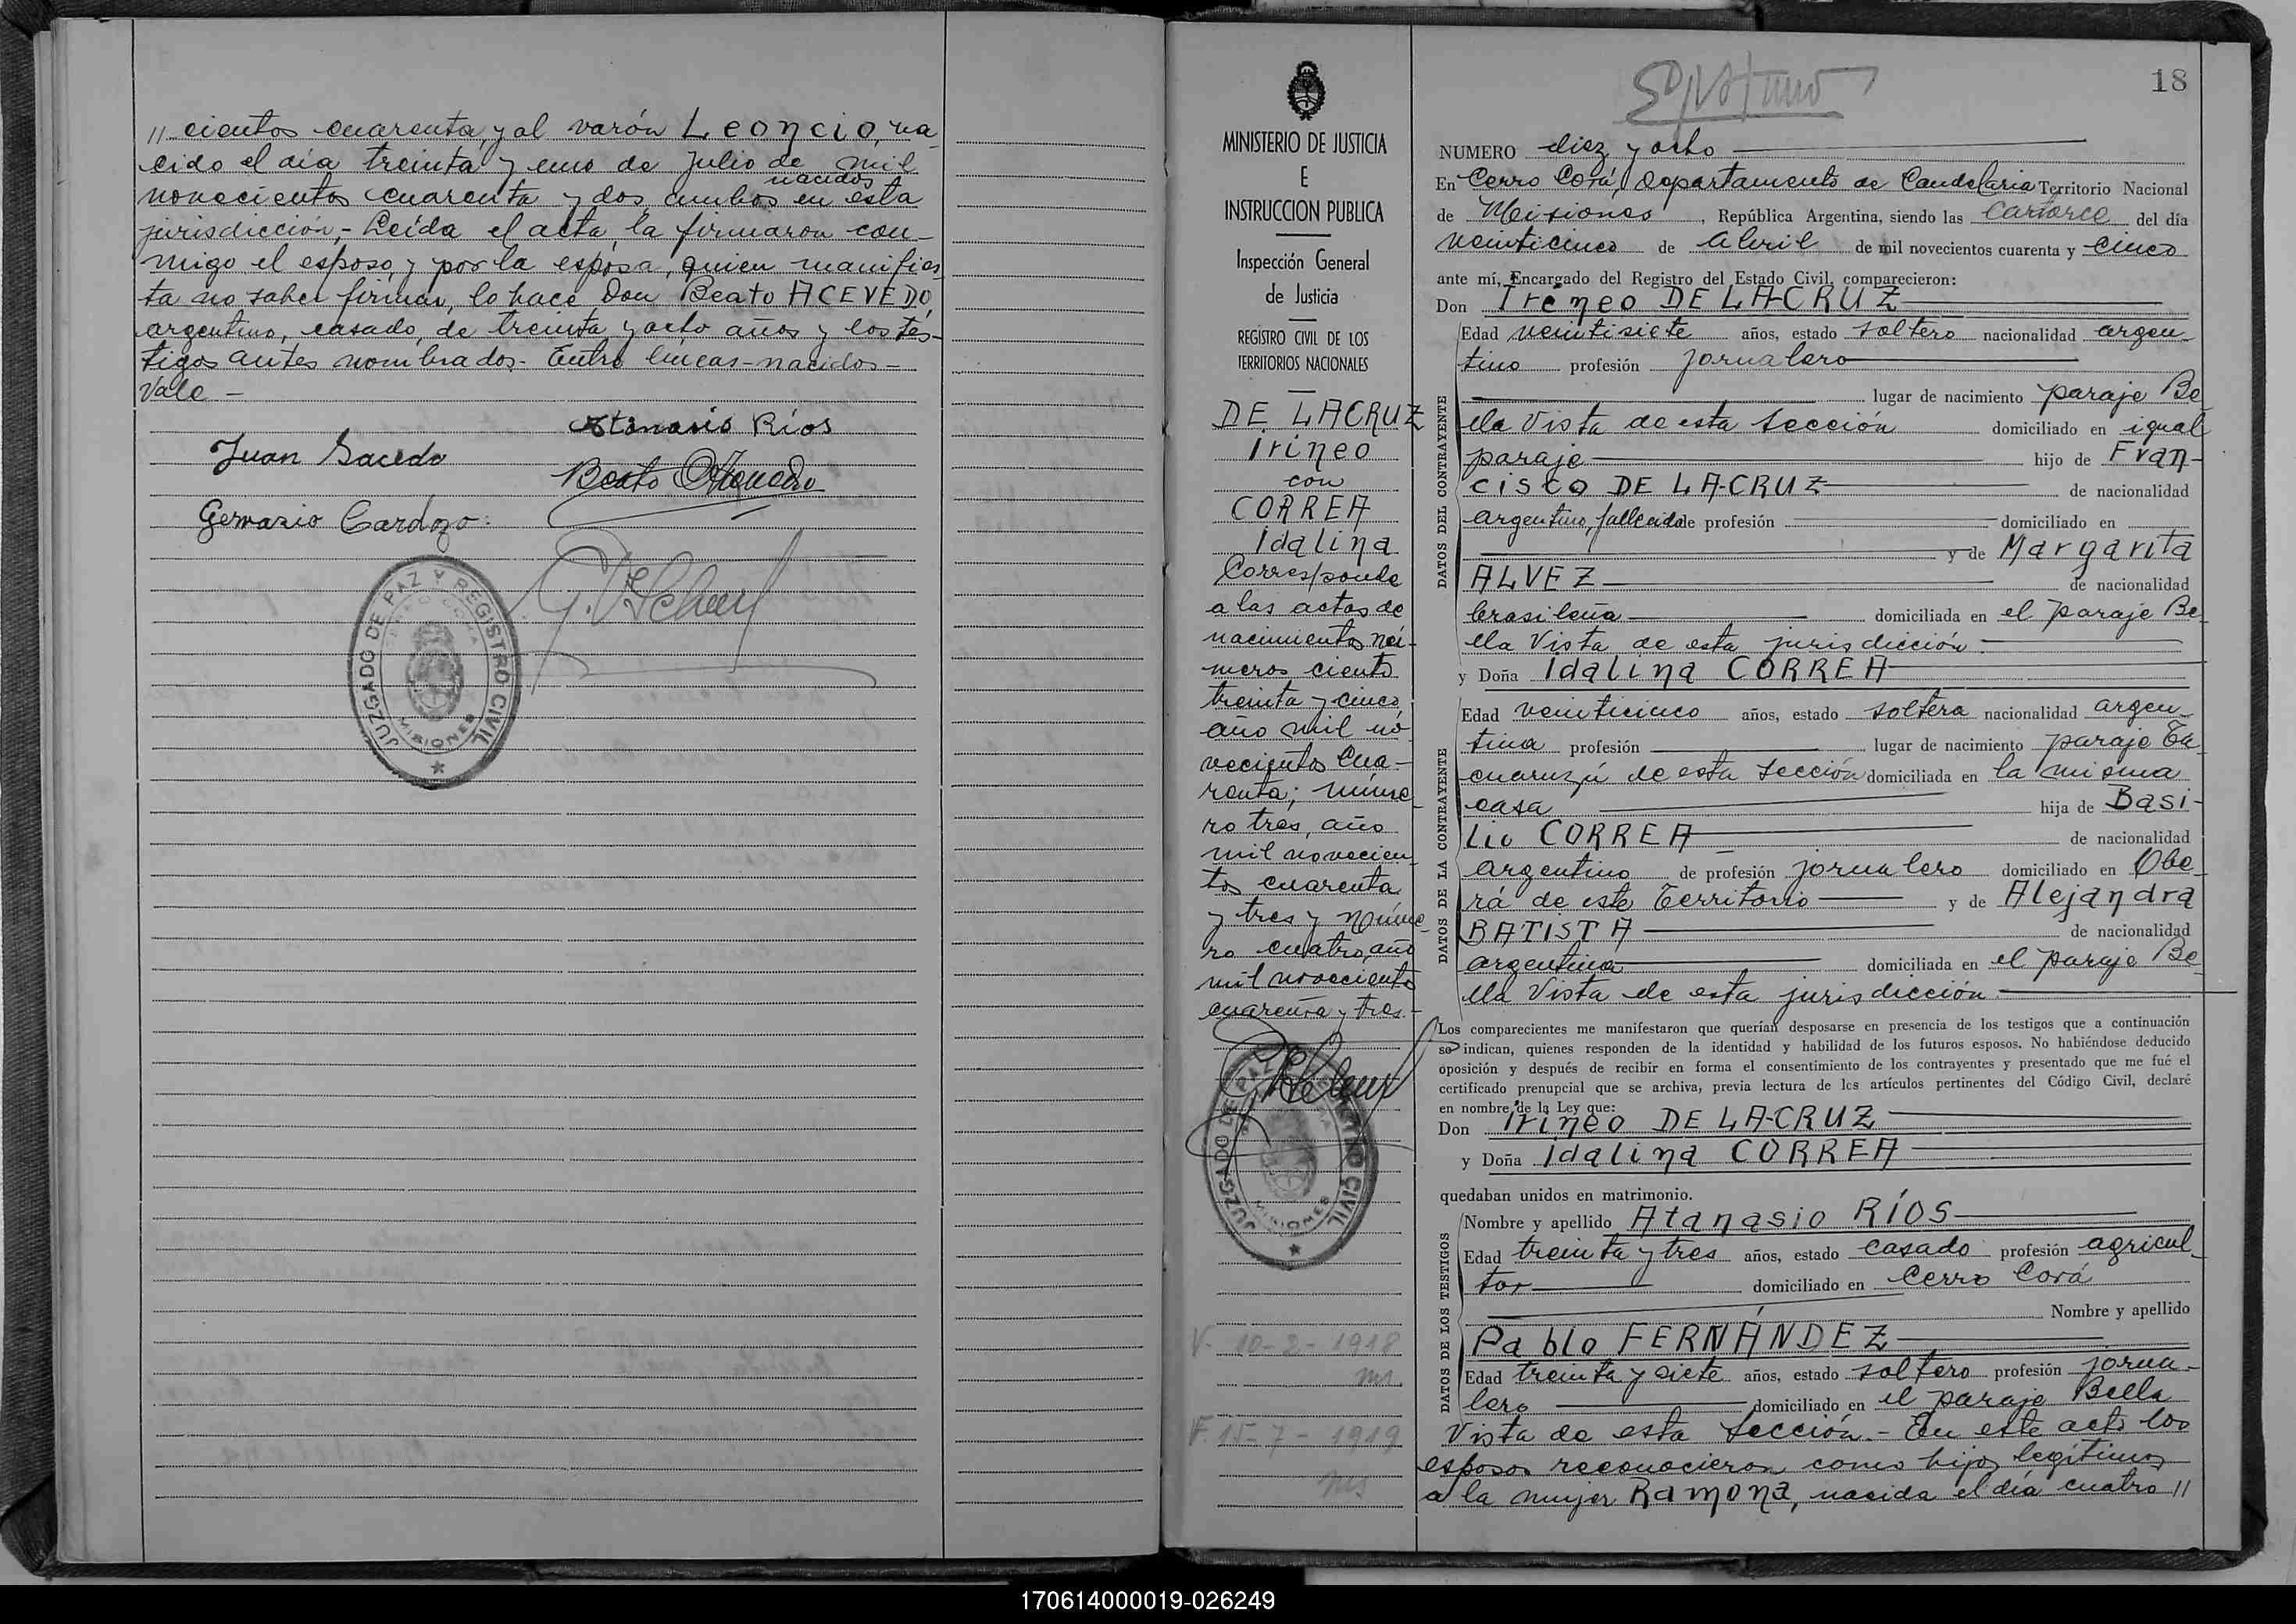 // cientos cuarenta, y al varón Leoncio, na-
cido el día treinta y uno de julio de mil
nacidos
novecientos cuarenta y dos, ambos en esta
jurisdicción,- Leída el acta, la firmaron con-
migo el esposo, y por la esposa, quien manifies-
ta no saber firmar, lo hace Don Beato ACEVEDO,
argentino, casado, de treinta y ocho años y los tes-
tigos antes nombrados.- Entre líneas-nacidos-
Vale -
Atanasio Ríos
Juan
Beato
Gervasio Cardozo.
JUZGADO DE PAZ Y REGISTRO CIVIL
MISIONES
MINISTERIO DE JUSTICIA
E
INSTRUCCION PUBLICA
Inspección General
de Justicia
REGISTRO CIVIL DE LOS
TERRITORIOS NACIONALES
DE LACRUZ
Irineo
con
CORREA
Idalina
Corresponde
a las actas de
nacimientos nú-
meros ciento
treinta y cinco,
año mil no-
vecientos cua-
renta; núme-
ro tres, año
mil novecien-
tos cuarenta
y tres y núme-
ro cuatro, año
mil novecientos
cuarenta y tres.-
JUZGADO DE PAZ Y REGISTRO CIVIL
MISIONES
V. 10-2-1918
ms.
F. 15-7-1919
ms
18
NUMERO diez y ocho
En Cerro Corá, Departamento de Candelaria Territorio Nacional
de Misiones, República Argentina, siendo las catorce del día
veinticinco de Abril de mil novecientos cuarenta y cinco
ante mí, Encargado del Registro del Estado Civil, comparecieron:
Don Irineo DE LA-CRUZ
DATOS DEL CONTRAYENTE
Edad veintisiete años, estado soltero nacionalidad argen-
tino profesión jornalero
lugar de nacimiento paraje Be-
lla Vista de esta sección domiciliado en igual
paraje hijo de Fran-
cisco DE LA-CRUZ de nacionalidad
argentino, fallecido de profesión domiciliado en
y de Margarita
ALVEZ de nacionalidad
brasileña domiciliada en el paraje Be-
lla Vista de esta jurisdicción.
y Doña Idalina CORREA
DATOS DE LA CONTRAYENTE
Edad veinticinco años, estado soltera nacionalidad argen-
tina profesión lugar de nacimiento paraje Ta-
cuaruzú de esta sección domiciliada en la misma
casa hija de Basi-
lio CORREA de nacionalidad
argentino de profesión jornalero domiciliado en Obe-
rá de este Territorio y de Alejandra
BATISTA de nacionalidad
argentina domiciliada en el paraje Be-
lla Vista de esta jurisdicción.
Los comparecientes me manifestaron que querían desposarse en presencia de los testigos que a continuación
se indican, quienes responden de la identidad y habilidad de los futuros esposos. No habiéndose deducido
oposición y después de recibir en forma el consentimiento de los contrayentes y presentado que me fué el
certificado prenupcial que se archiva, previa lectura de los artículos pertinentes del Código Civil, declaré
en nombre de la Ley que:
Don Irineo DE LA-CRUZ
y Doña Idalina CORREA
quedaban unidos en matrimonio.
DATOS DE LOS TESTIGOS
Nombre y apellido Atanasio RÍOS
Edad treinta y tres años, estado casado profesión agricul-
tor domiciliado en Cerro Corá
Nombre y apellido
Pablo FERNÁNDEZ
Edad treinta y siete años, estado soltero profesión jorna-
lero domiciliado en el paraje Bella
Vista de esta sección.- En este acto los
esposos reconocieron como hijos legítimos
a la mujer Ramona, nacida el día cuatro //
170614000019-026249